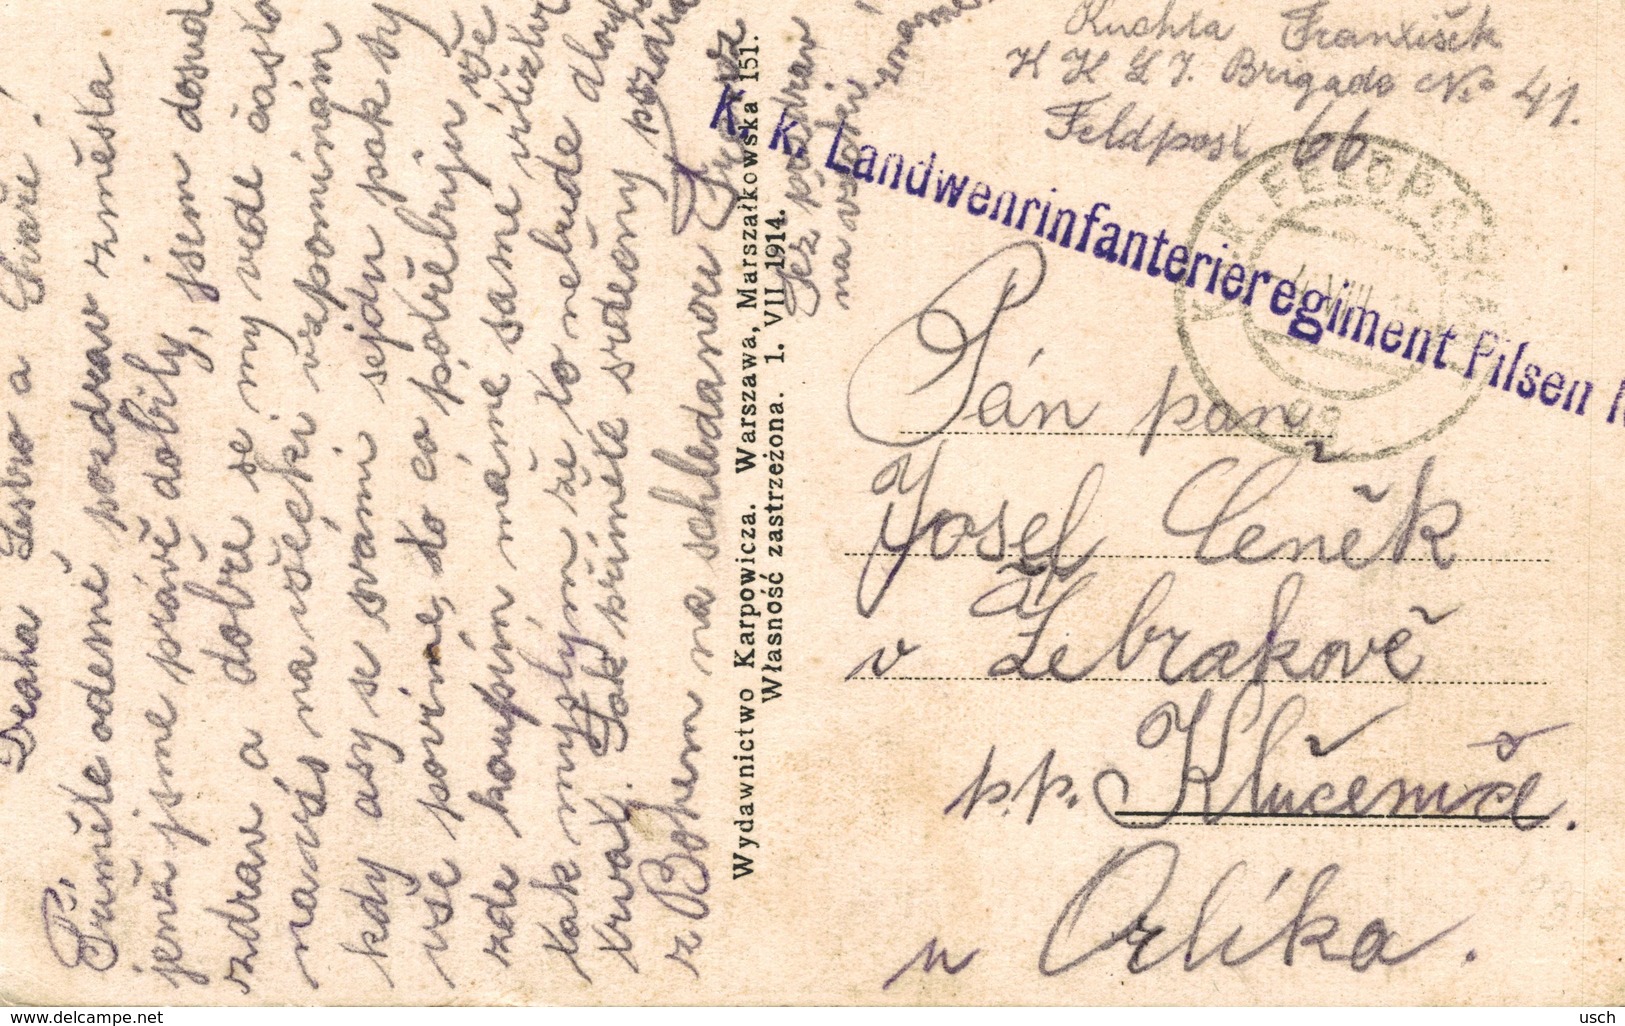 Drahá Sestro a Švaře!
Přiměte odemě pozdrav změsta
jenž jsme právě dobily, jsem dosud
zdrav a dobře se my vede často
na vás na všecki vzpomínám
kdy asy se svámi sejdu pak sy
vše povíme, to co potřebuju vše
zde koupím máme same vítězství
tak myslym že to nebude dlouho
trvat. Tak přiměte srdečný pozdrav
z Bohem na schledanou Franz
Též pozdrav
na všecki známé
Wydawnictwo Karpowicza. Warszawa, Marszałkowska 151.
Własność zastrzeżona. 1. VII 1914.
Kuchta Frantisěk
K K L I. Brigade No 41.
Feldpost 66
K. k. Landwehrinfanterieregiment Pilsen
K.u.K. FELDPOSTAMT
VIII 15
Pán pan
Josef Čeněk
v Žebrakově
p.p. Klučenice
u Orlíka.
www.delcampe.net
usch